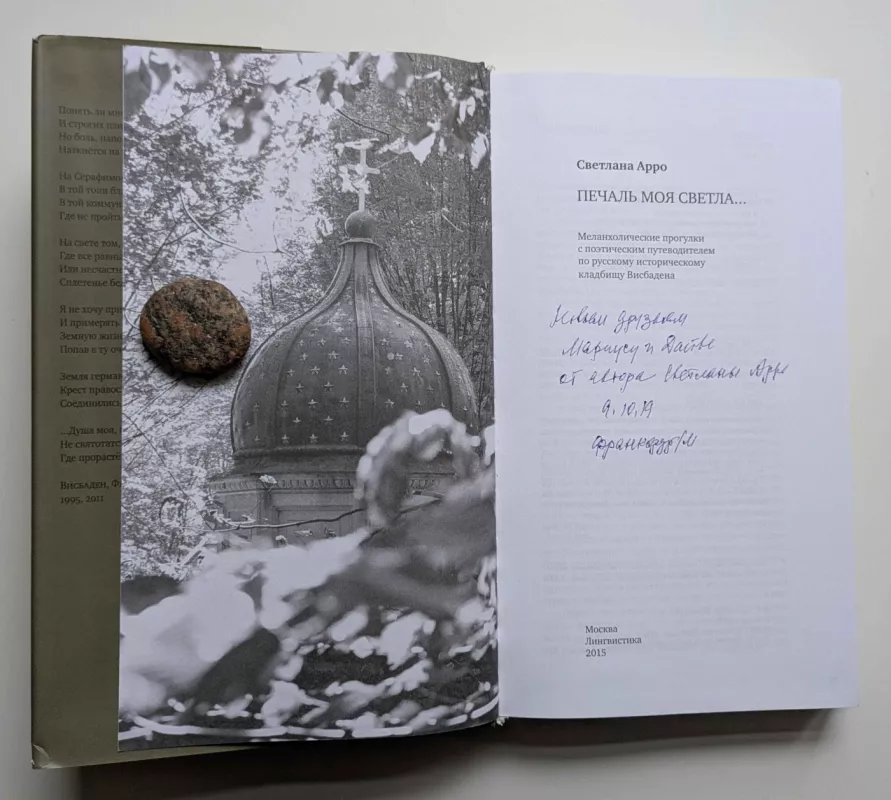 Понять ли мн
И строгих пли
Но боль, напо
Наткнётся на
На Серафимо
В той топи бл
В той комму
Где не пройти
На свете том,
Где все равны
Или несчастн
Сплетенье бед
Я не хочу при
И примерять
Земную жизн
Попав в ту оч
Земля герман
Крест правос
Соединились
...Душа моя,
Не святотатс
Где прорасте
Висбаден, Ф
1995, 2011
Светлана Арро
ПЕЧАЛЬ МОЯ СВЕТЛА...
Меланхолические прогулки
с поэтическим путеводителем
по русскому историческому
кладбищу Висбадена
Новым друзьям
Мариусу и Дайве
от автора Светланы Арро
9.10.19
Франкфурт/М
Москва
Лингвистика
2015